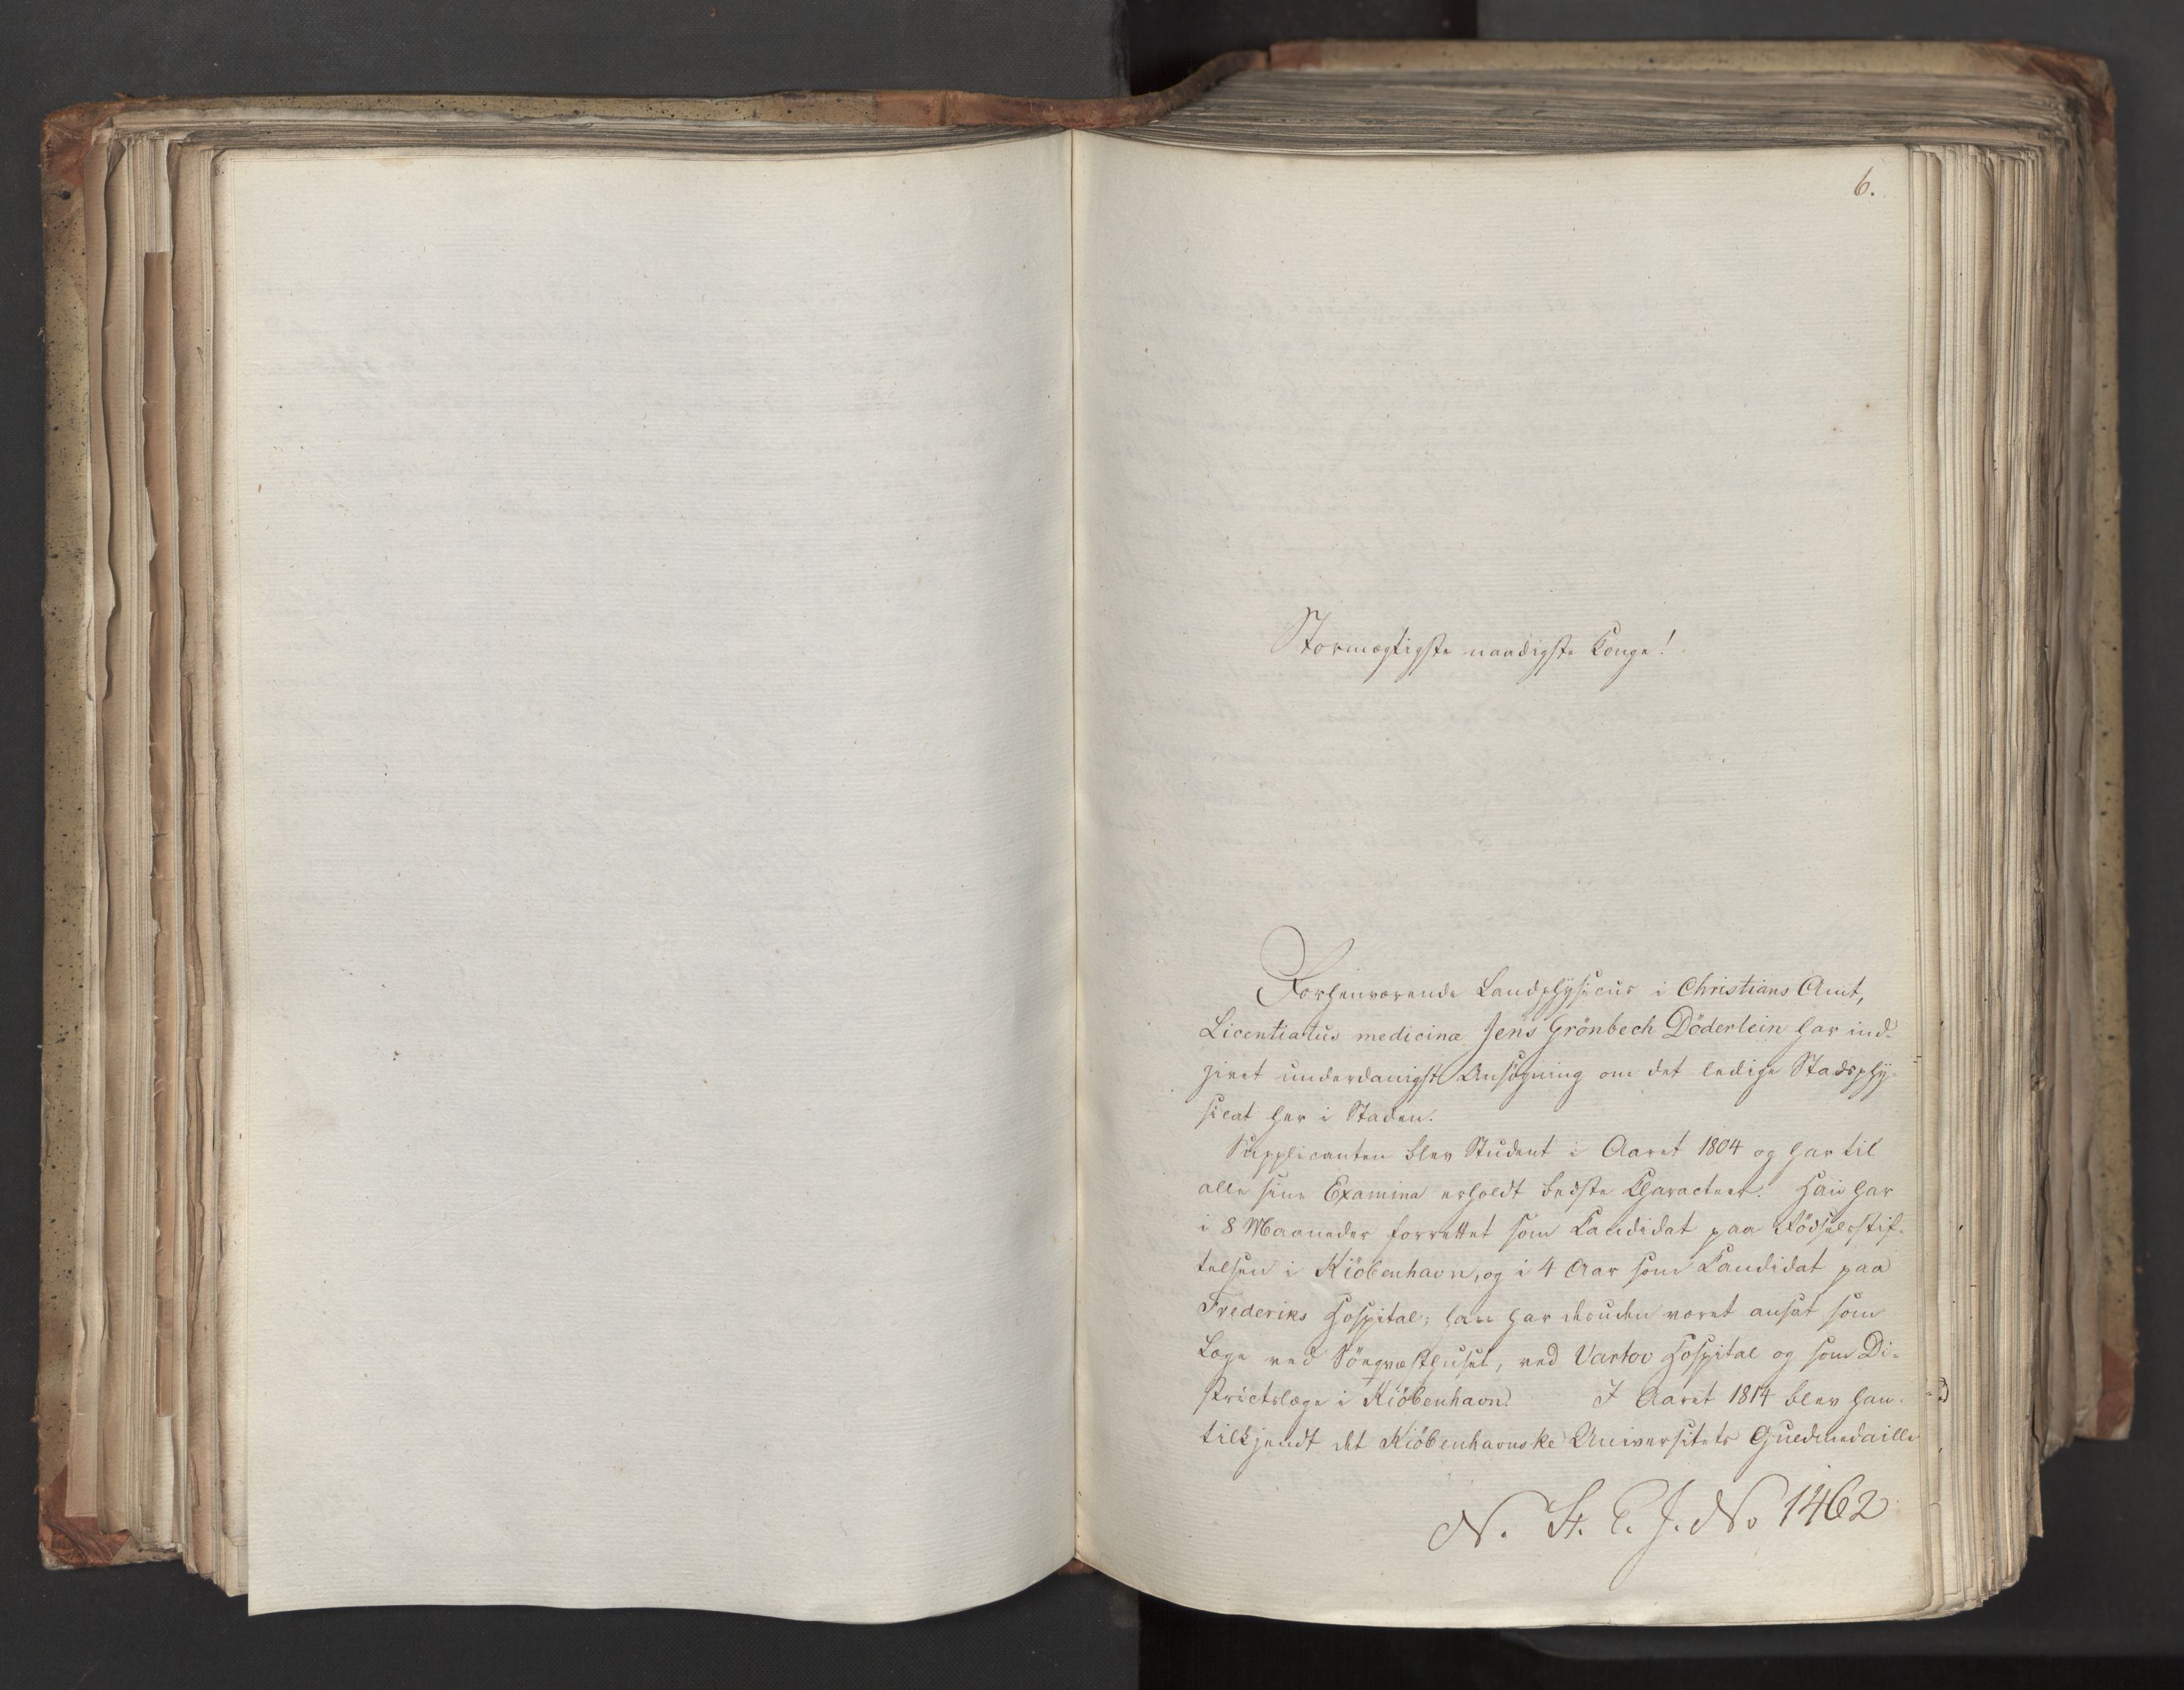 6.
Stormægtigste naadigste Konge!
Forhenværende Landphysicus i Christians Amt,
Licentiatus medicinæ Jens Grönbech Döderlein har ind-
givet underdanigst Ansögning om det ledige Stadsphy-
sicat her i Staden.
Supplicanten blev Student i Aaret 1804 og har til
alle sine Examina erholdt bedste Characteer. Han har
i 8 Maaneder forrettet som Kandidat paa Födselsstif-
telsen i Kiöbenhavn, og i 4 Aar som Kandidat paa
Frederiks Hospital; han har desuden været ansat som
Læge ved Söeqvæsthuset, ved Vartov Hospital og som Di-
strictslæge i Kiöbenhavn. I Aaret 1814 blev han
tilkjendt det Kiöbenhavnske Universitets Guldmedaille
N. St. C. J. No 1462